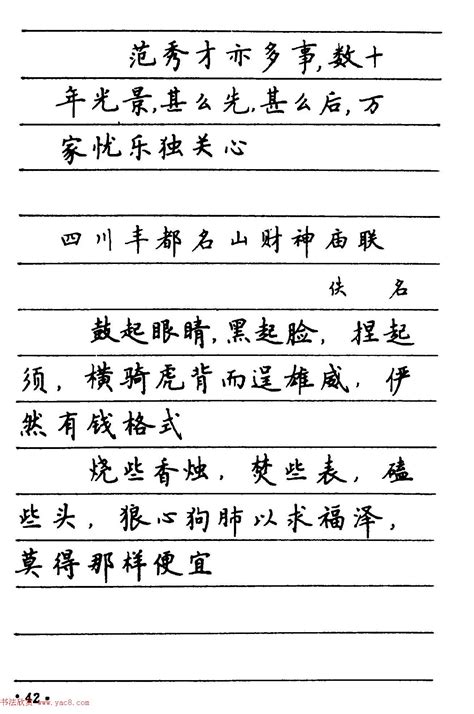 范秀才亦多事,数十
年光景,甚么先,甚么后,万
家忧乐独关心
四川丰都名山财神庙联
佚 名
鼓起眼睛,黑起脸,捏起
须,横骑虎背而逞雄威,俨
然有钱格式
烧些香烛,焚些表,磕
些头,狼心狗肺以求福泽,
莫得那样便宜
·42·
书法欣赏 www.yac8.com